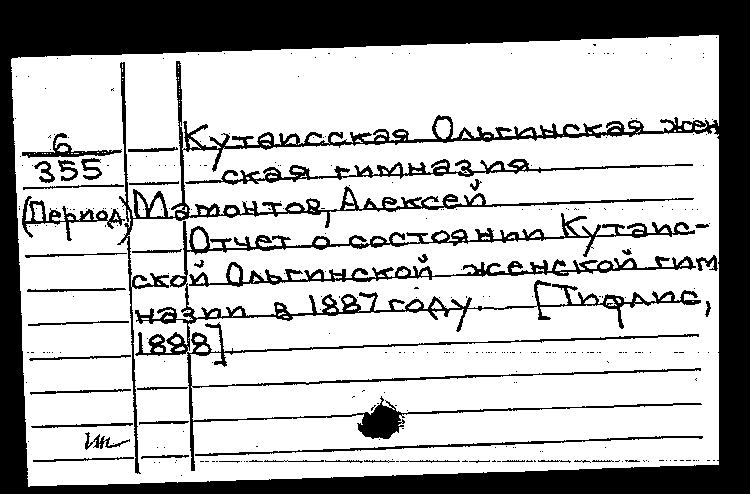 6
355
(Период.)
Кутаисская Ольгинская жен
ская гимназия.
Мамонтов, Алексей
Отчет о состоянии Кутаис-
ской Ольгинской женской гим
назии в 1887 году. [Тифлис,
1888]